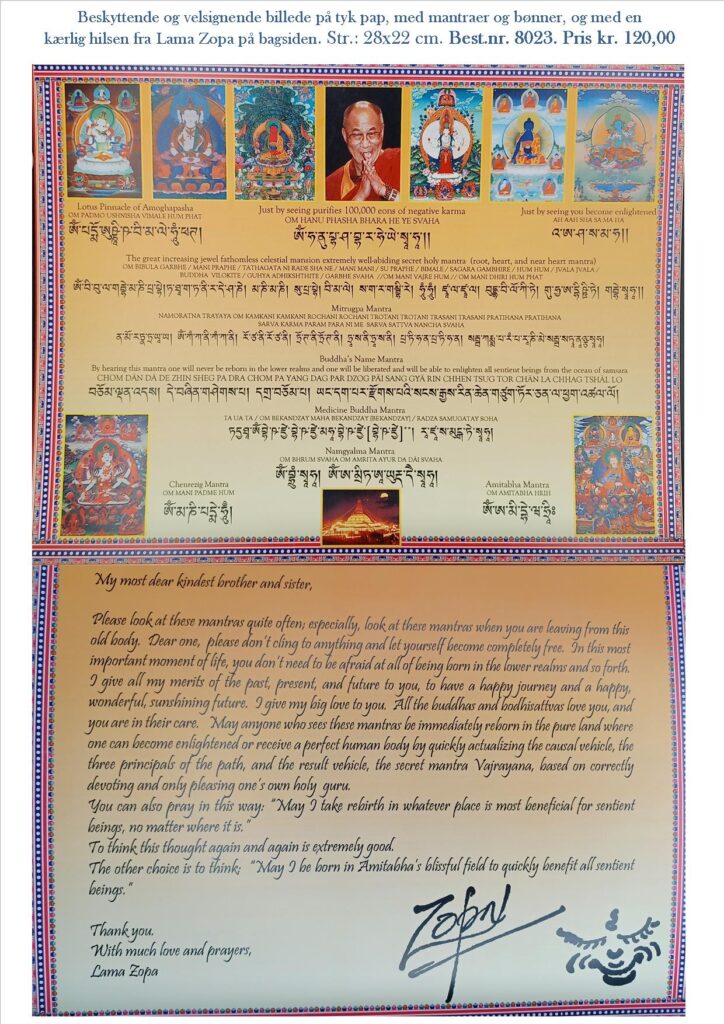 Beskyttende og velsignende billede på tyk pap, med mantraer og bønner, og med en
kærlig hilsen fra Lama Zopa på bagsiden. Str.: 28x22 cm. Best.nr. 8023. Pris kr. 120,00
Lotus Pinnacle of Amoghapasha
OM PADMO USHNISHA VIMALE HUM PHAT
Just by seeing purifies 100,000 eons of negative karma
OM HANU PHASHA BHARA HE YE SVAHA
Just by seeing you become enlightened
AH AH SHA SA MA HA
ཨོཾ་ཧ་ནུ་པྷ་ཤ་བྷ་ར་ཧེ་ཡེ་སྭཱ་ཧཱ།།
འ་ཨ་ཤ་ས་མ་ཧ།།
The great increasing jewel fathomless celestial mansion extremely well-abiding secret holy mantra (root, heart, and near heart mantra)
OM BIBULA GARBHE / MANI PRAPHE / TATHAGATA NI RADE SHA NE / MANI MANI / SU PRAPHE / BIMALE / SAGARA GAMBHIRE / HUM HUM / JVALA JVALA /
BUDDHA VILOKITE / GUHYA ADHIKSHTHITE / GARBHE SVAHA //OM MANI VAJRE HUM // OM MANI DHIRI HUM PHAT
Mitrugpa Mantra
NAMORATNA TRAYAYA OM KAMKANI KAMKANI ROCHANI ROCHANI TROTANI TROTANI TRASANI TRASANI PRATIHANA PRATIHANA
SARVA KARMA PARAM PARA NI ME SARVA SATTVA NANCHA SVAHA
Buddha's Name Mantra
By hearing this mantra one will never be reborn in the lower realms and one will be liberated and will be able to enlighten all sentient beings from the ocean of samsara
CHOM DÄN DÄ DE ZHIN SHEG PA DRA CHOM PA YANG DAG PAR DZOG PÄI SANG GYÄ RIN CHHEN TSUG TOR CHÄN LA CHHAG TSHÄL LO
བཅོམ་ལྡན་འདས། དེ་བཞིན་གཤེགས་པ། དགྲ་བཅོམ་པ། ཡང་དག་པར་རྫོགས་པའི་སངས་རྒྱས་རིན་ཆེན་གཙུག་ཏོར་ཅན་ལ་ཕྱག་འཚལ་ལོ།
Medicine Buddha Mantra
TA YA TA / OM BEKANDZAY MAHA BEKANDZAY (BEKANDZAY) / RADZA SAMUGATAY SOHA
Namgyalma Mantra
OM BHRUM SVAHA OM AMRITA AYUR DA DÄI SVAHA
Chenrezig Mantra
OM MANI PADME HUM
ཨོཾ་མ་ཎི་པདྨེ་ཧཱུྃ།
Amitabha Mantra
OM AMITABHA HRIH
My most dear kindest brother and sister,
Please look at these mantras quite often; especially, look at these mantras when you are leaving from this
old body. Dear one, please don't cling to anything and let yourself become completely free. In this most
important moment of life, you don't need to be afraid at all of being born in the lower realms and so forth.
I give all my merits of the past, present, and future to you, to have a happy journey and a happy,
wonderful, sunshining future. I give my big love to you. All the buddhas and bodhisattvas love you, and
you are in their care. May anyone who sees these mantras be immediately reborn in the pure land where
one can become enlightened or receive a perfect human body by quickly actualizing the causal vehicle, the
three principals of the path, and the result vehicle, the secret mantra Vajrayana, based on correctly
devoting and only pleasing one's own holy guru.
You can also pray in this way: "May I take rebirth in whatever place is most beneficial for sentient
beings, no matter where it is."
To think this thought again and again is extremely good.
The other choice is to think; "May I be born in Amitabha's blissful field to quickly benefit all sentient
beings."
Thank you.
With much love and prayers,
Lama Zopa
Zopa